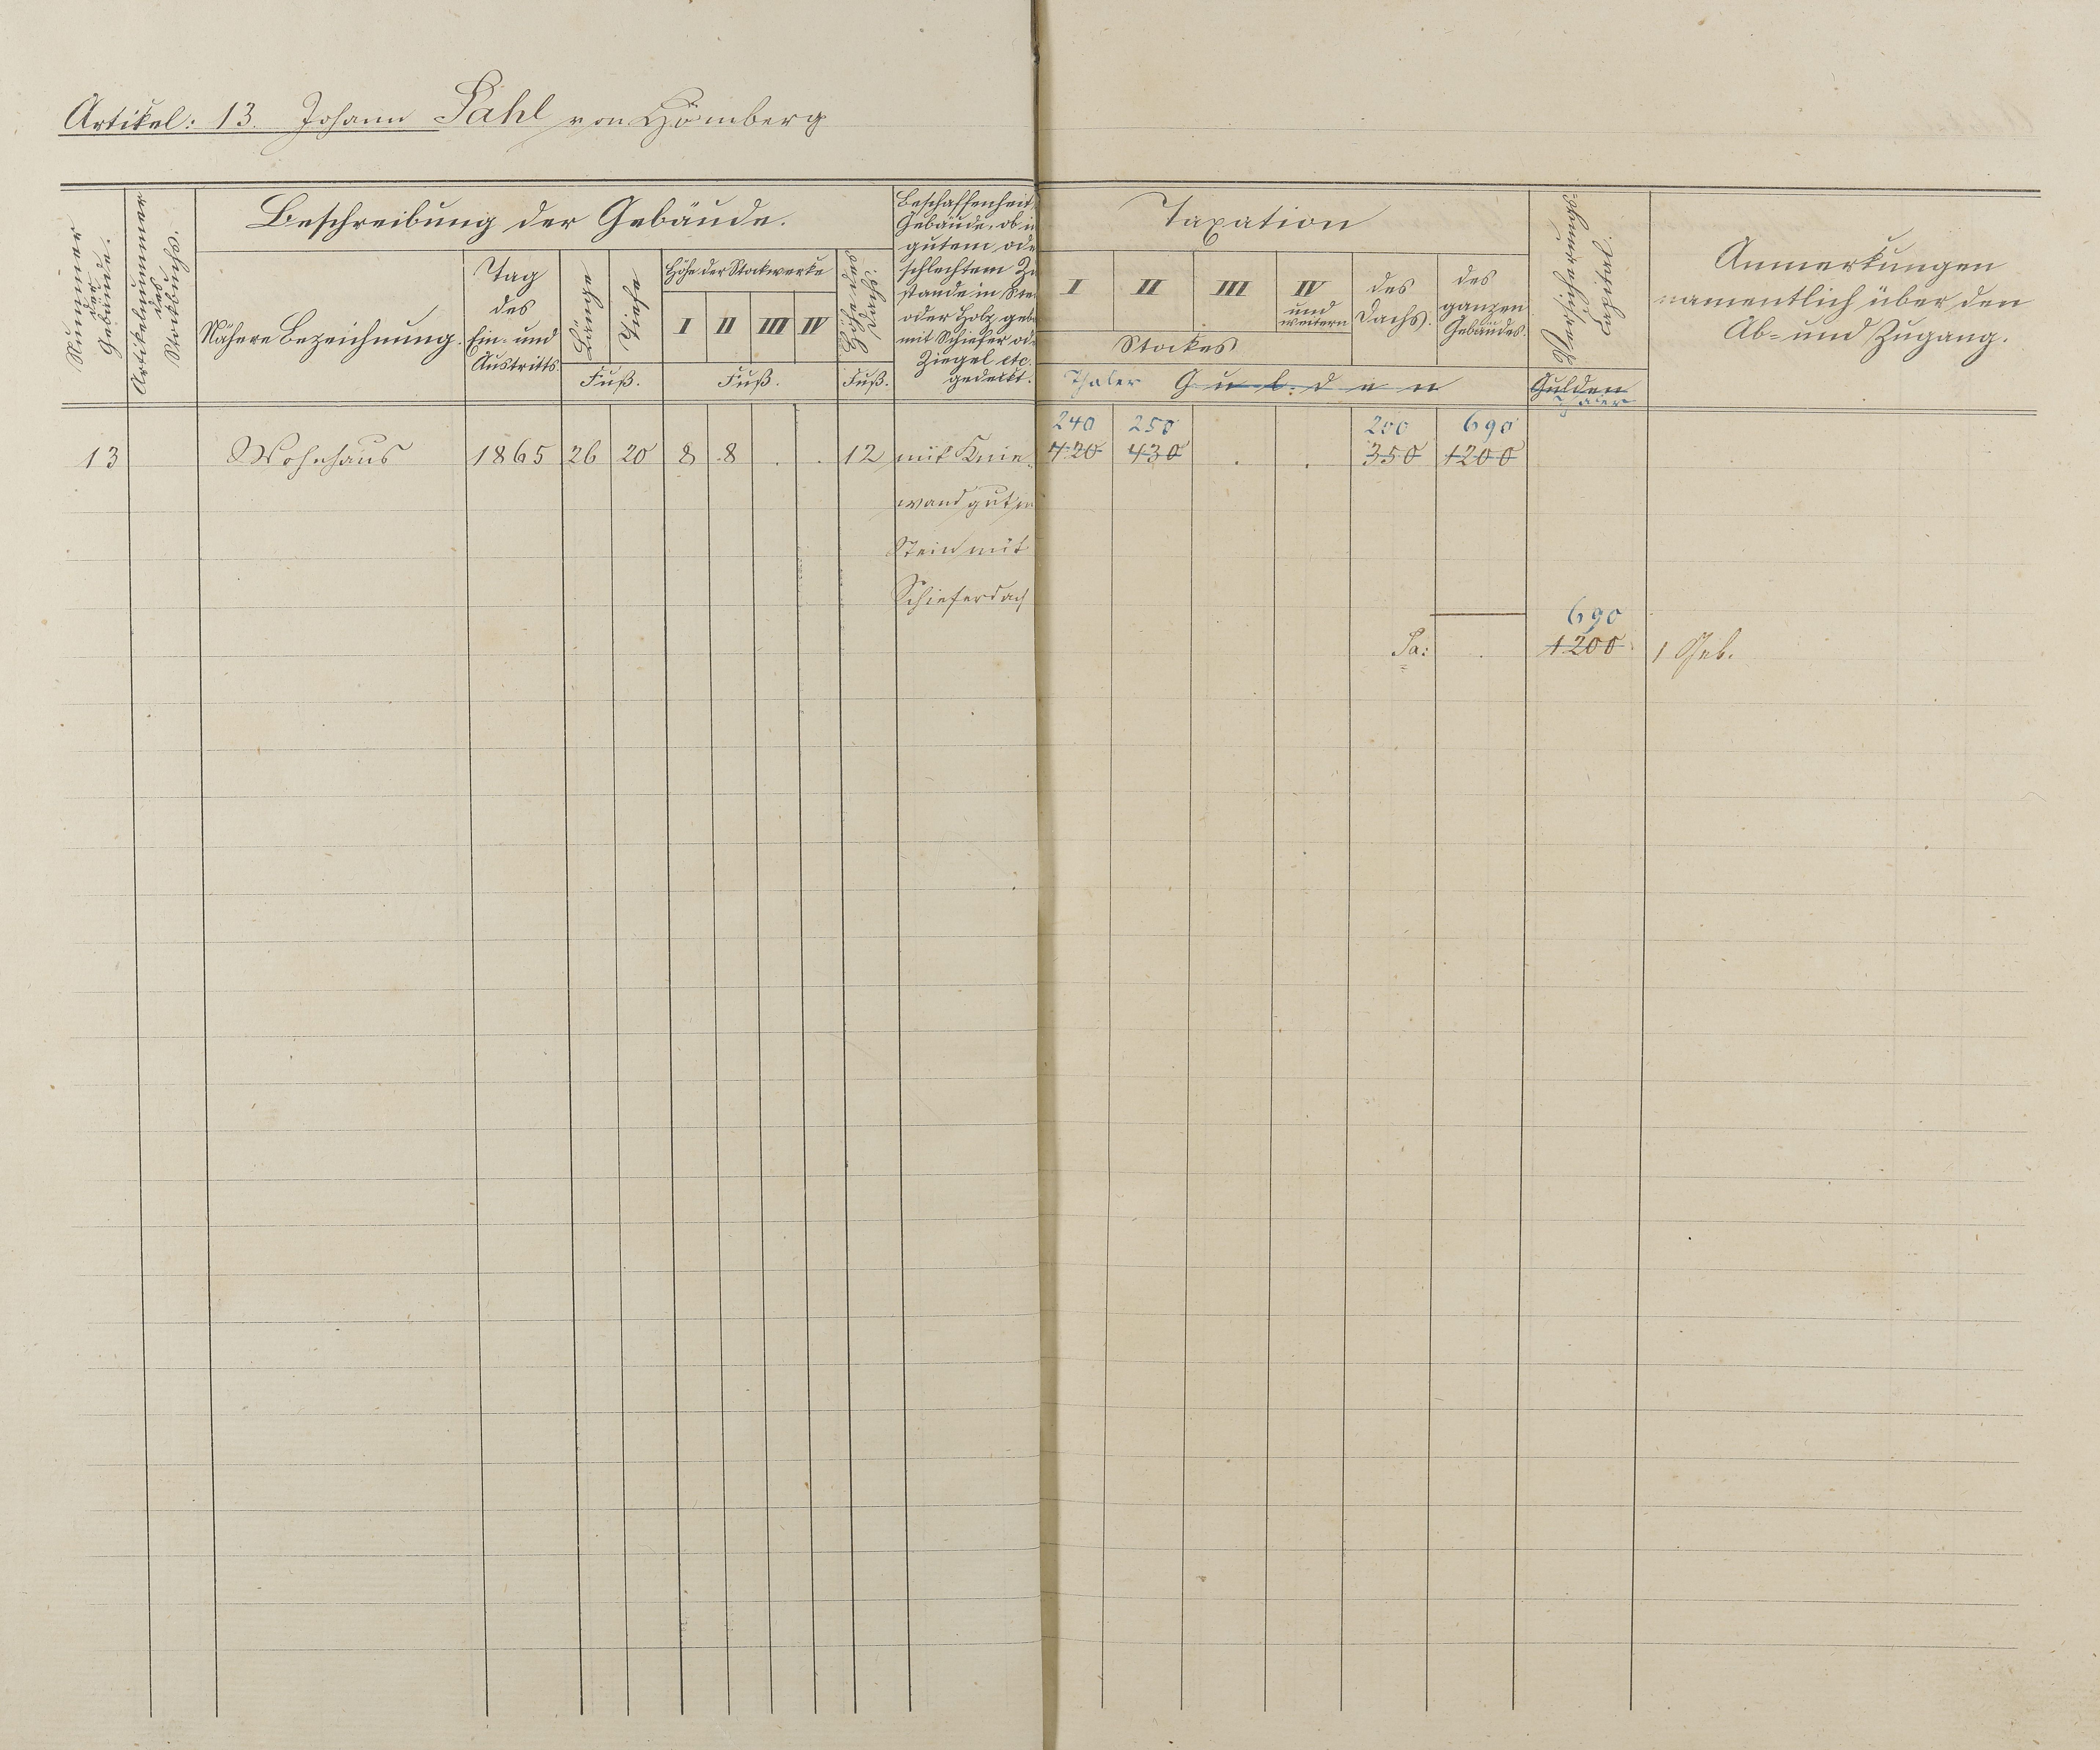 Artikel: 13. Johann Pahl von Hömberg
Nummer der Gebäude.
Artikelnummer des Stockbuchs.
Beschreibung der Gebäude.
Nähere Bezeichnung.
Tag
des
Ein- und
Austritts.
Länge
Tiefe
Fuß.
Höhe der Stockwerke
I II III IV
Fuß.
Höhe des Dachs.
Fuß.
Beschaffenheit
Gebäude, ob in
gutem ode
schlechtem Zu
stande in Stei
oder Holz geba
mit Schiefer ode
Ziegel etc.
gedeckt.
Taxation
I II III IV
und
weitern
Stockes
des
Dachs.
des
ganzen
Gebäudes.
Thaler Gulden
Versicherungs-
Capital.
Gulden
Thaler
Anmerkungen
namentlich über den
Ab- und Zugang.
240 250 200 690
13 Wohnhaus 1865 26 20 8 8 . . 12 mit Knie- 420 430 . . 350 1200
wand gut in
Stein mit
Schieferdach
690
Sa: . 1200 1 Geb.